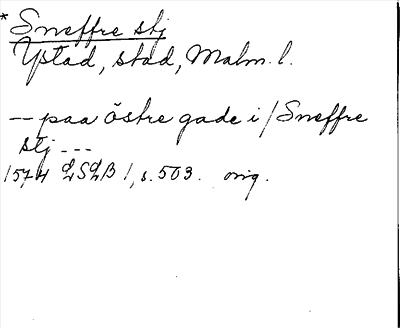 * Sneffre stj
Ystad, stad, Malm. l.
— paa östre gade i / Sneffre
stj ---
1574 LSLB 1, s. 503. orig.